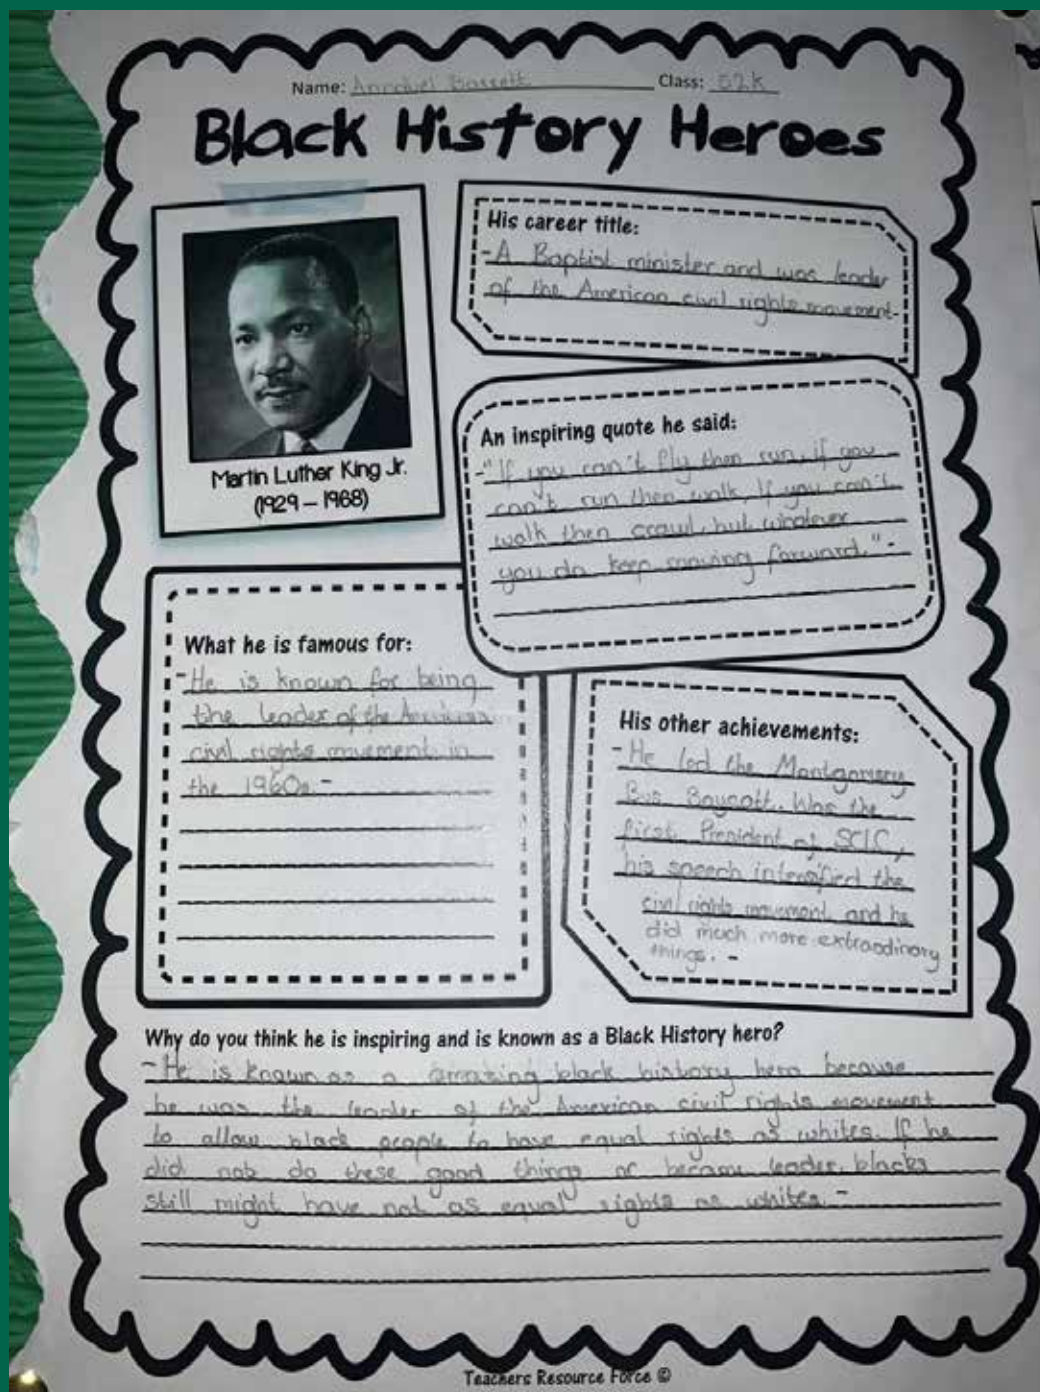 Name: Annabel Bassett Class: 52K
Black History Heroes
Martin Luther King Jr.
(1929 – 1968)
His career title:
-A Baptist minister and was leader
of the American civil rights movement-
An inspiring quote he said:
-"If you can't fly then run, if you
can't run then walk, If you can't
walk then crawl, but whatever
you do keep moving forward."-
What he is famous for:
-He is known for being
the leader of the American
civil rights movement in
the 1960s.-
His other achievements:
-He led the Montgomery
Bus Boycott. Was the
first President of SCLC,
his speech intensified the
civil rights movement and he
did much more extraodinary
things. -
Why do you think he is inspiring and is known as a Black History hero?
-He is known as a amazing black history hero because
he was the leader of the American civil rights movement
to allow black people to have equal rights as whites. If he
did not do these good things or became leader, blacks
still might have not as equal rights as whites.-
Teachers Resource Force ©